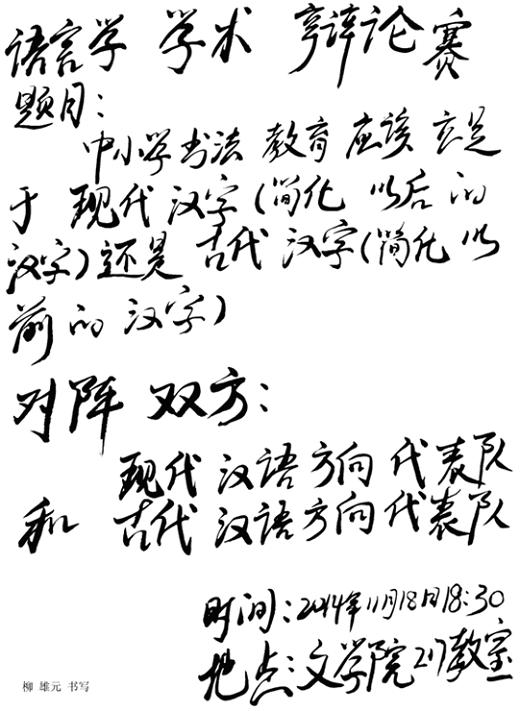 语言学 学术 辩论赛
题目：
中小学书法 教育 应该 立足
于 现代 汉字(简化 以后 的
汉字)还是 古代 汉字(简化 以
前 的 汉字)
对阵 双方：
现代 汉语 方向 代表队
和 古代 汉语 方向 代表队
时间：2014年11月18日18:30
地点：文学院217教室
柳 雄元 书写